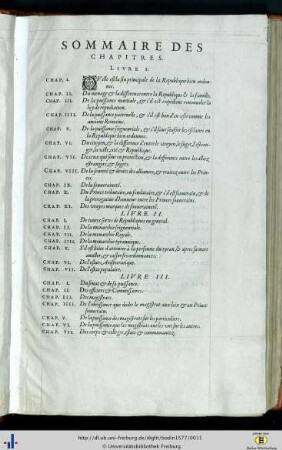 SOMMAIRE DES
CHAPITRES.
LIVRE I.
CHAP. I. QVelle est la fin principale de la Republique bien ordon-
nee.
CHAP. II. Du mesnage, & la difference entre la Republique & la famille.
CHAP. III. De la puissance maritale, & s'il est expedient renouveller la
loy de repudiation.
CHAP. IIII. De la puissance paternelle, & s'il est bon d'en vser comme les
anciens Romains.
CHAP. V. De la puissance seigneuriale, & s'il faut souffrir les esclaues en
la Republique bien ordonnee.
CHAP. VI. Du citoyen, & la difference d'entre le citoyen, le suget, l'estran-
ger, la ville, cité & Republique.
CHAP. VII. De ceux qui sont en protection, & la difference entre les alliez,
estrangers, & sugets.
CHAP. VIII.
CHAP. IX. De la souueraineté.
CHAP. X. Du Prince tributaire, ou feudataire, & s'il est souuerain, & de
la prerogatiue d'honneur entre les Princes souuerains.
CHAP. XI. Des vrayes marques de souueraineté.
LIVRE II.
CHAP. I. De toutes sortes de Republiques en general.
CHAP. II. De la monarchie seigneuriale.
CHAP. III. De la monarchie Royale.
CHAP. IIII. De la monarchie tyrannique.
CHAP. V. S'il est licite d'attenter à la personne du tyran, & apres sa mort
annuller, & casser ses ordonnances.
CHAP. VI. De l'estat Aristocratique.
CHAP. VII. De l'estat populaire.
LIVRE III.
CHAP. I. Du senat & de sa puissance.
CHAP. II. Des officiers & Commissaires.
CHAP. III. Des magistrats.
CHAP. IIII. De l'obeissance que doibt le magistrat aux loix & au Prince
souuerain.
CHAP. V. De la puissance des magistrats sur les particuliers.
CHAP. VI. De la puissance que les magistrats ont les vns sur les autres.
CHAP. VII. Des corps & colleges, estats & communautez.
http://dl.ub.uni-freiburg.de/diglit/bodin1577/0011
Universitätsbibliothek Freiburg
Baden-Württemberg